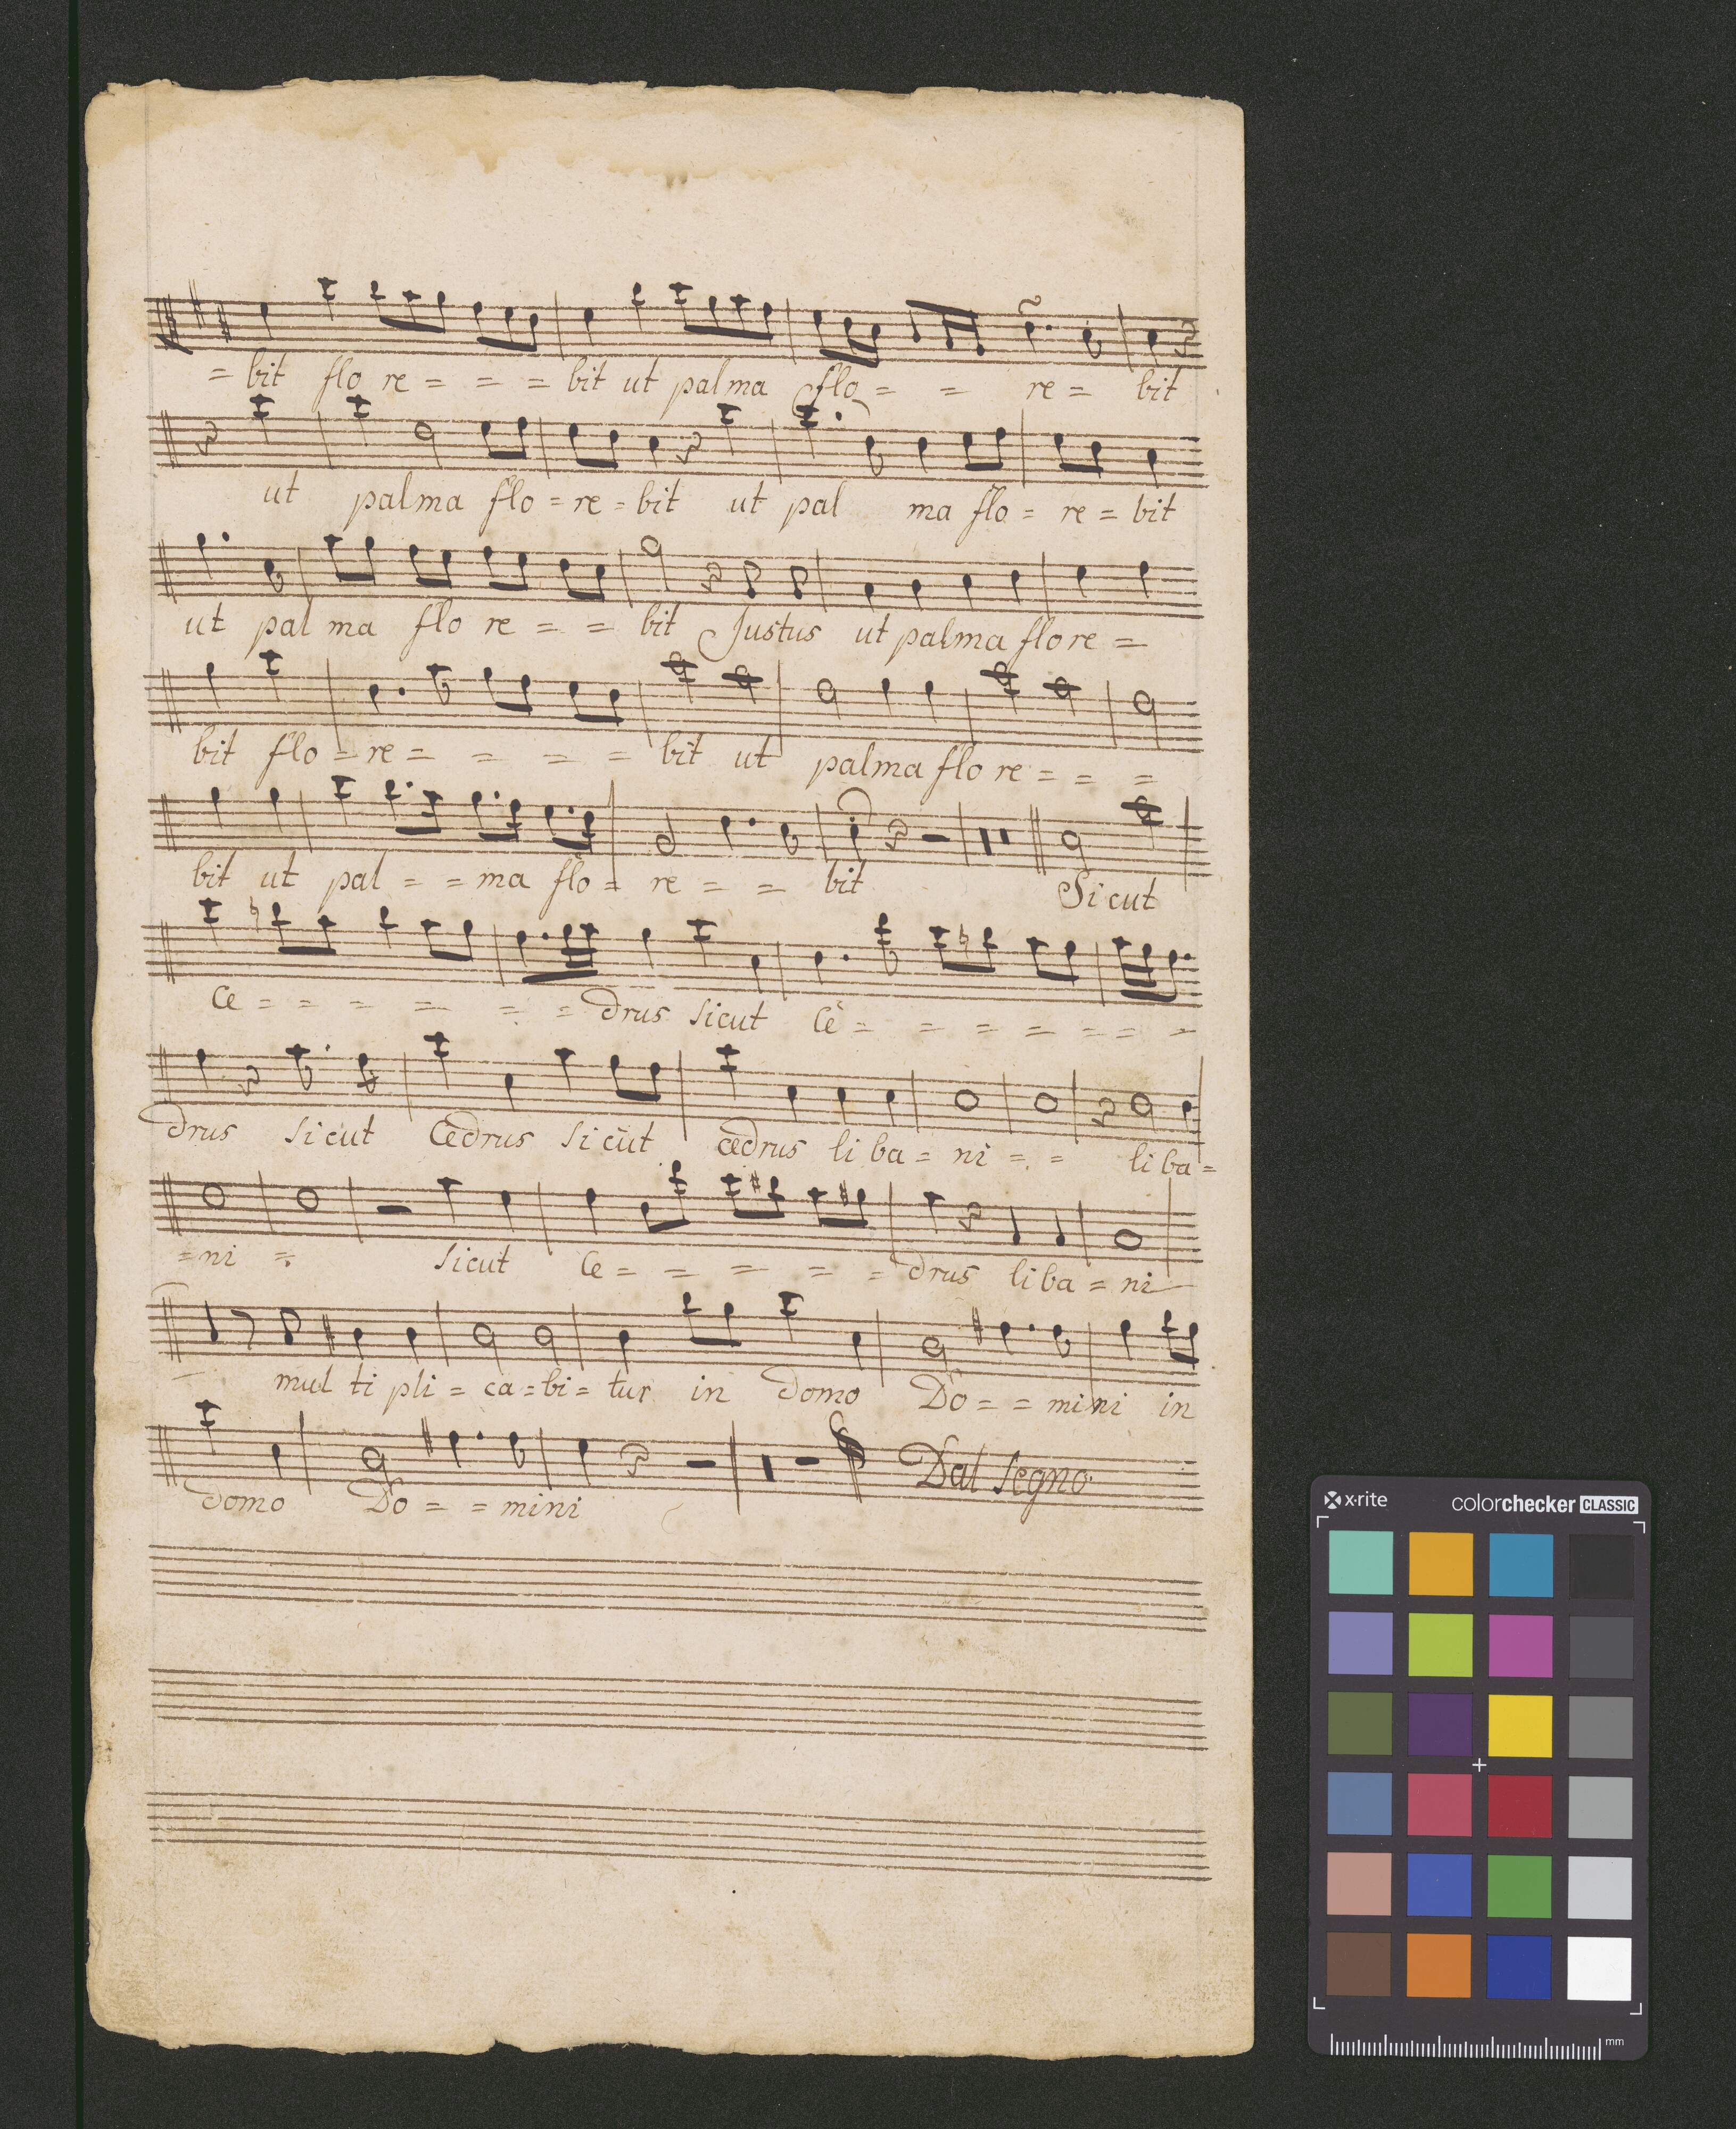 = bit flo re = = = bit ut palma flo = = re = bit
ut palma flo = re = bit ut pal ma flo = re = bit
ut pal ma flo re = = bit Justus ut palma flo re =
bit flo = re = = = = bit ut palma flo re = = =
bit ut pal = = ma flo = re = = bit Sicut
Ce = = = = = = drus sicut Ce = = = = = = =
drus sicut Cedrus sicut cedrus li ba = ni = = li ba =
= ni = sicut Ce = = = = = drus li ba = ni
mul ti pli = ca = bi = tur in domo Do = = mini in
domo Do = = mini Dal segno
x·rite colorchecker CLASSIC
mm